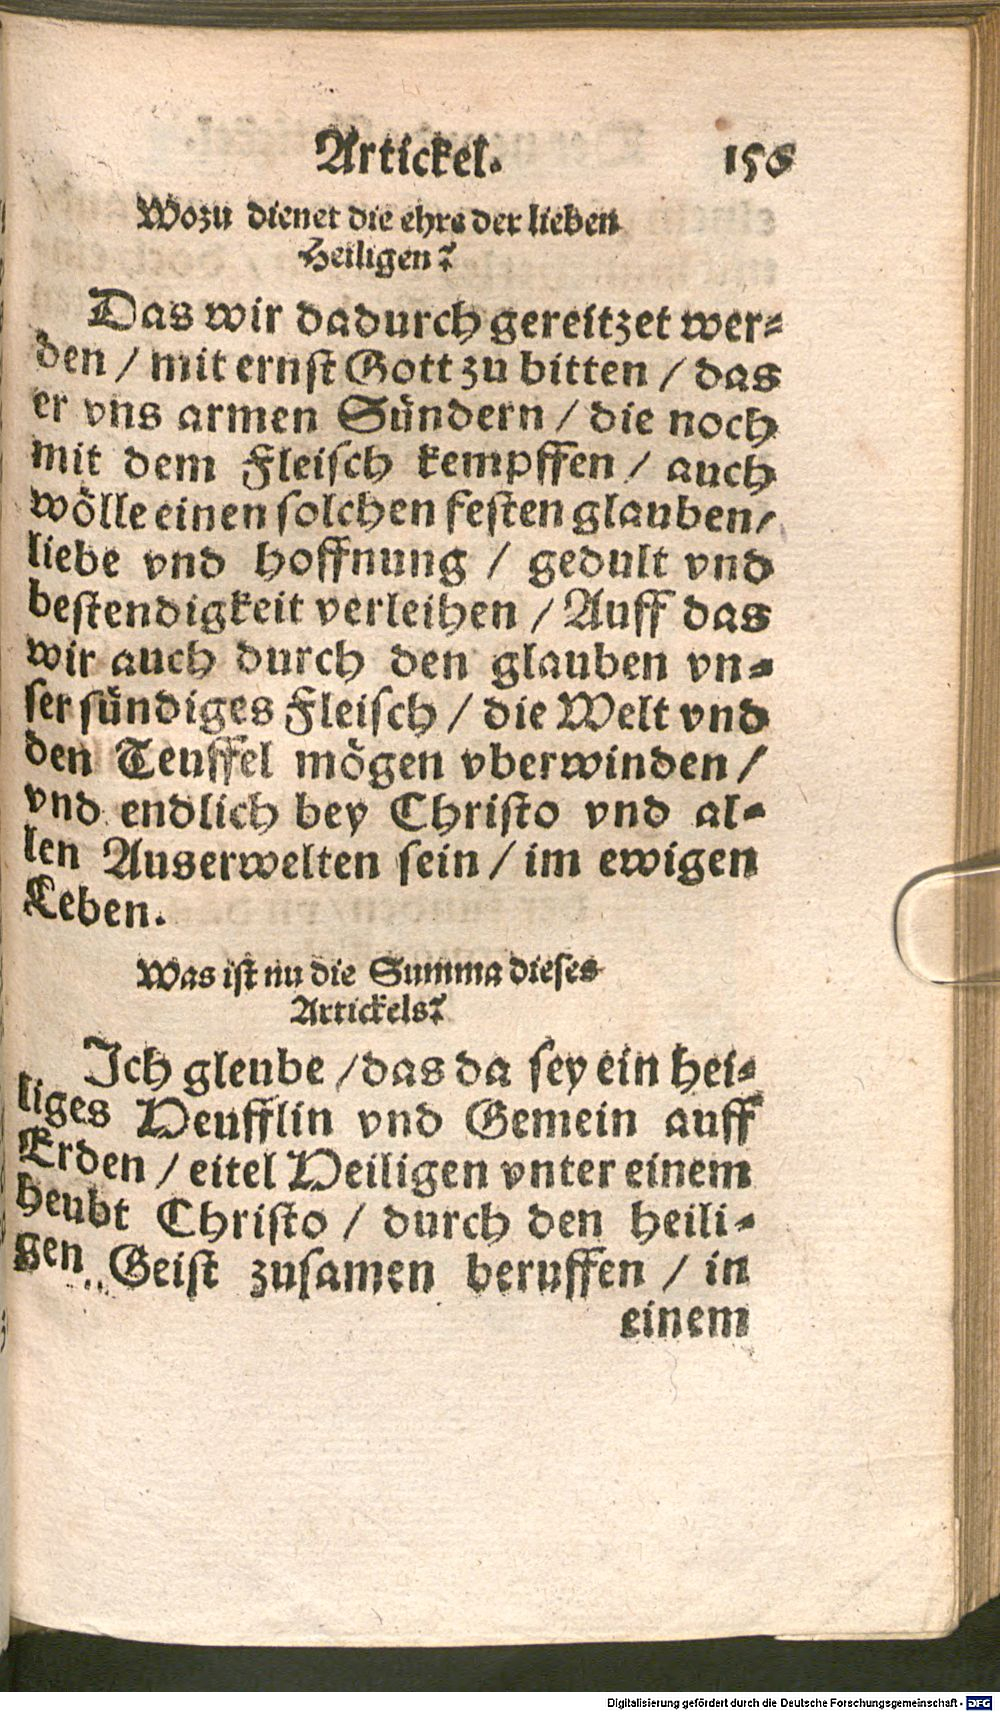 Artickel. 156
Wozu dienet die ehre der lieben
Heiligen?
Das wir dadurch gereitzet wer-
den / mit ernst Gott zu bitten / das
er vns armen Sündern / die noch
mit dem Fleisch kempffen / auch
wölle einen solchen festen glauben/
liebe vnd hoffnung / gedult vnd
bestendigkeit verleihen / Auff das
wir auch durch den glauben vn-
ser sündiges Fleisch / die Welt vnd
den Teuffel mögen vberwinden /
vnd endlich bey Christo vnd al-
len Auserwelten sein / im ewigen
Leben.
Was ist nu die Summa dieses
Artickels?
Ich gleube / das da sey ein hei-
liges Heufflin vnd Gemein auff
Erden / eitel Heiligen vnter einem
heubt Christo / durch den heili-
gen Geist zusamen beruffen / in
einem
Digitalisierung gefördert durch die Deutsche Forschungsgemeinschaft - DFG